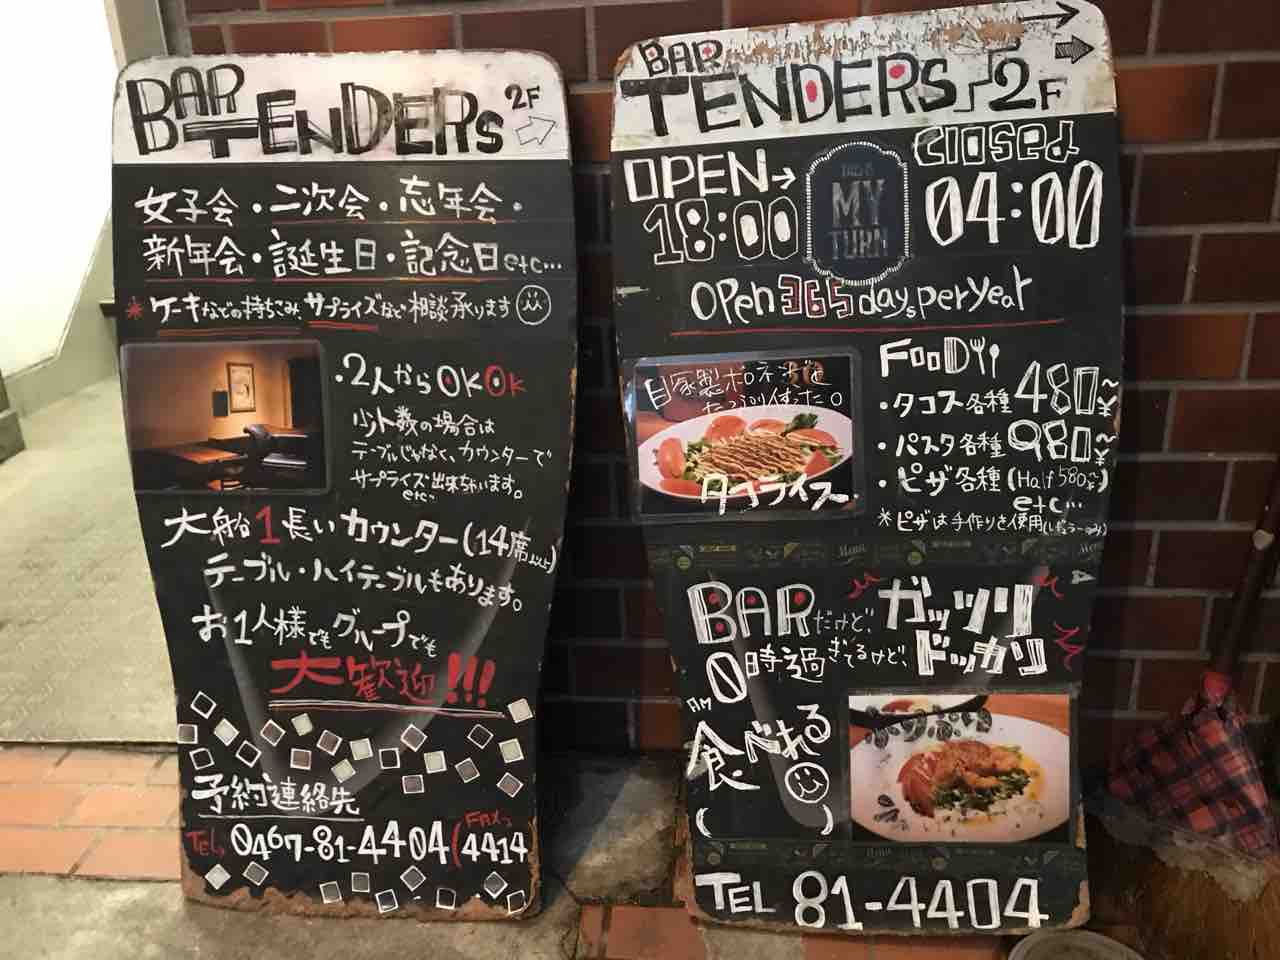 BAR
TENDERS 2F
女子会・二次会・忘年会・
新年会・誕生日・記念日etc…
*ケーキなどの持ちこみ、サプライズなど相談承ります
・2人からOK OK
少人数の場合は
テーブルじゃなく、カウンターで
サプライズ出来ちゃいます。
etc…
大船1長いカウンター(14席以上)
テーブル・ハイテーブルもあります。
お1人様でもグループでも
大歓迎!!!
予約連絡先
TEL 0467-81-4404 (FAX 4414)
BAR
TENDERS 2F
OPEN→
18:00
THIS IS
MY
TURN
CLOSED
04:00
OPen 365 days per year
自家製ボロネーゼを
たっぷり使った。
タコライス
FOOD
・タコス各種 480~¥
・パスタ各種 980~¥
・ピザ各種(Half 580¥~)
etc…
*ピザは手作りを使用
Menu
BARだけど、ガッツリ
AM 0時過ぎてるけど、ドッカリ
食べれる
TEL 81-4404